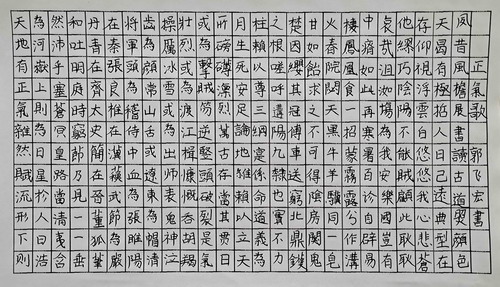 天地有正氣雜然賦流形下則
為河嶽上則為日星於人曰浩
然沛乎塞蒼冥皇路當清夷含
和吐明庭時窮節乃見一一垂
丹青在齊太史簡在晉董狐筆
在秦張良椎在漢蘇武節為嚴
將軍頭為嵇侍中血為張睢陽
齒為顏常山舌或為遼東帽清
操厲冰雪或為出師表鬼神泣
壯烈或為渡江楫慷慨吞胡羯
或為擊賊笏逆豎頭破裂是氣
所磅礡凜烈萬古存當其貫日
月生死安足論地維賴以立天
柱賴以尊三綱實係命道義為
之根嗟予遘陽九隸也實不力
楚囚纓其冠傳車送窮北鼎鑊
甘如飴求之不可得陰房闃鬼
火春院閟天黑牛驥同一皂雞
棲鳳凰食一朝蒙霧露分作溝
中瘠如此再寒暑百沴自辟易
哀哉沮洳場為我安樂國豈有
他繆巧陰陽不能賊顧此耿耿
存仰視浮雲白悠悠我心悲蒼
天曷有極哲人日已遠典型在
夙昔風簷展書讀古道照顏色
正氣歌 郭飛宏書